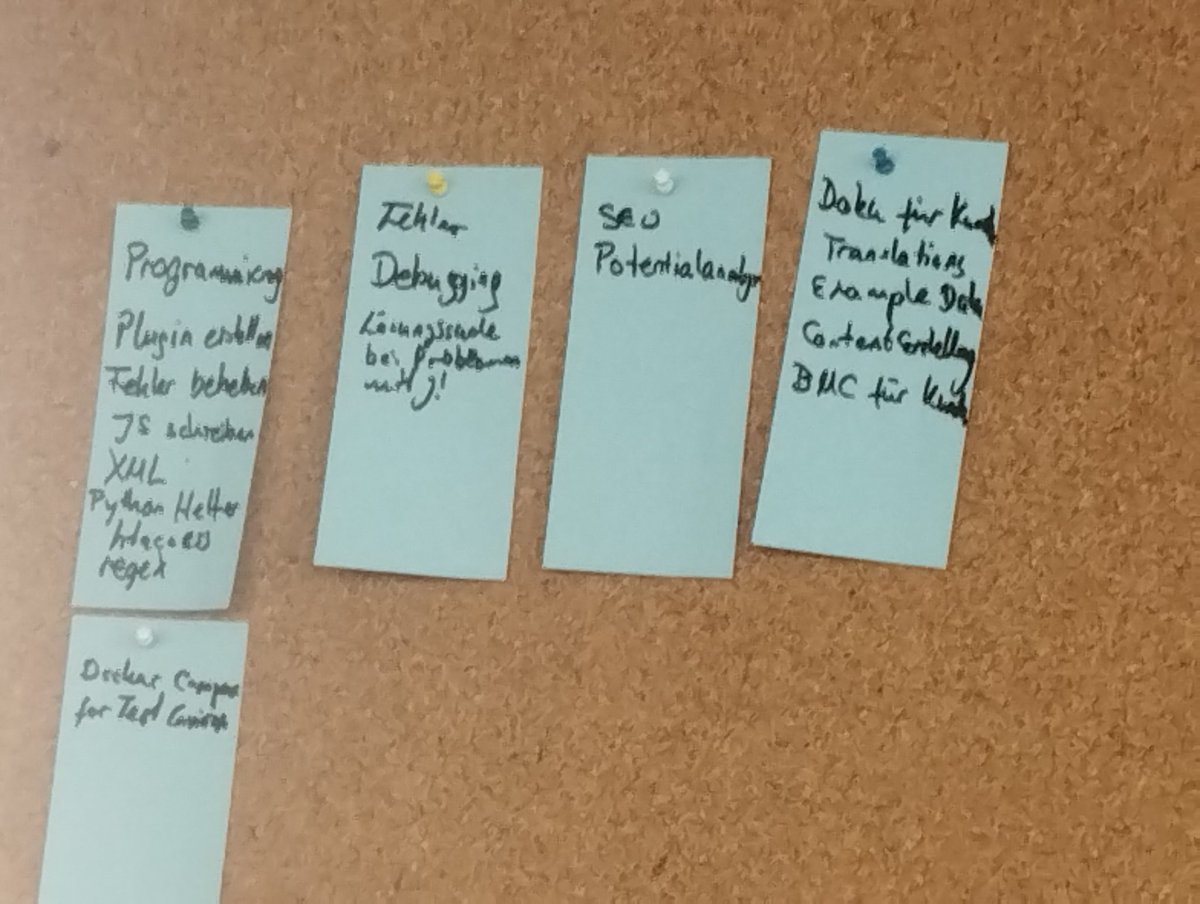 Programmierung
Plugin erstellen
Fehler beheben
JS schreiben
XML
Python Helfer
htaccess
regex
Docker Compose
for Test
Fehler
Debugging
Lösungssuche
bei Problemen
SEO
Potentialanalyse
Doku für
Translations
Example Data
Content Erstellung
BMC für